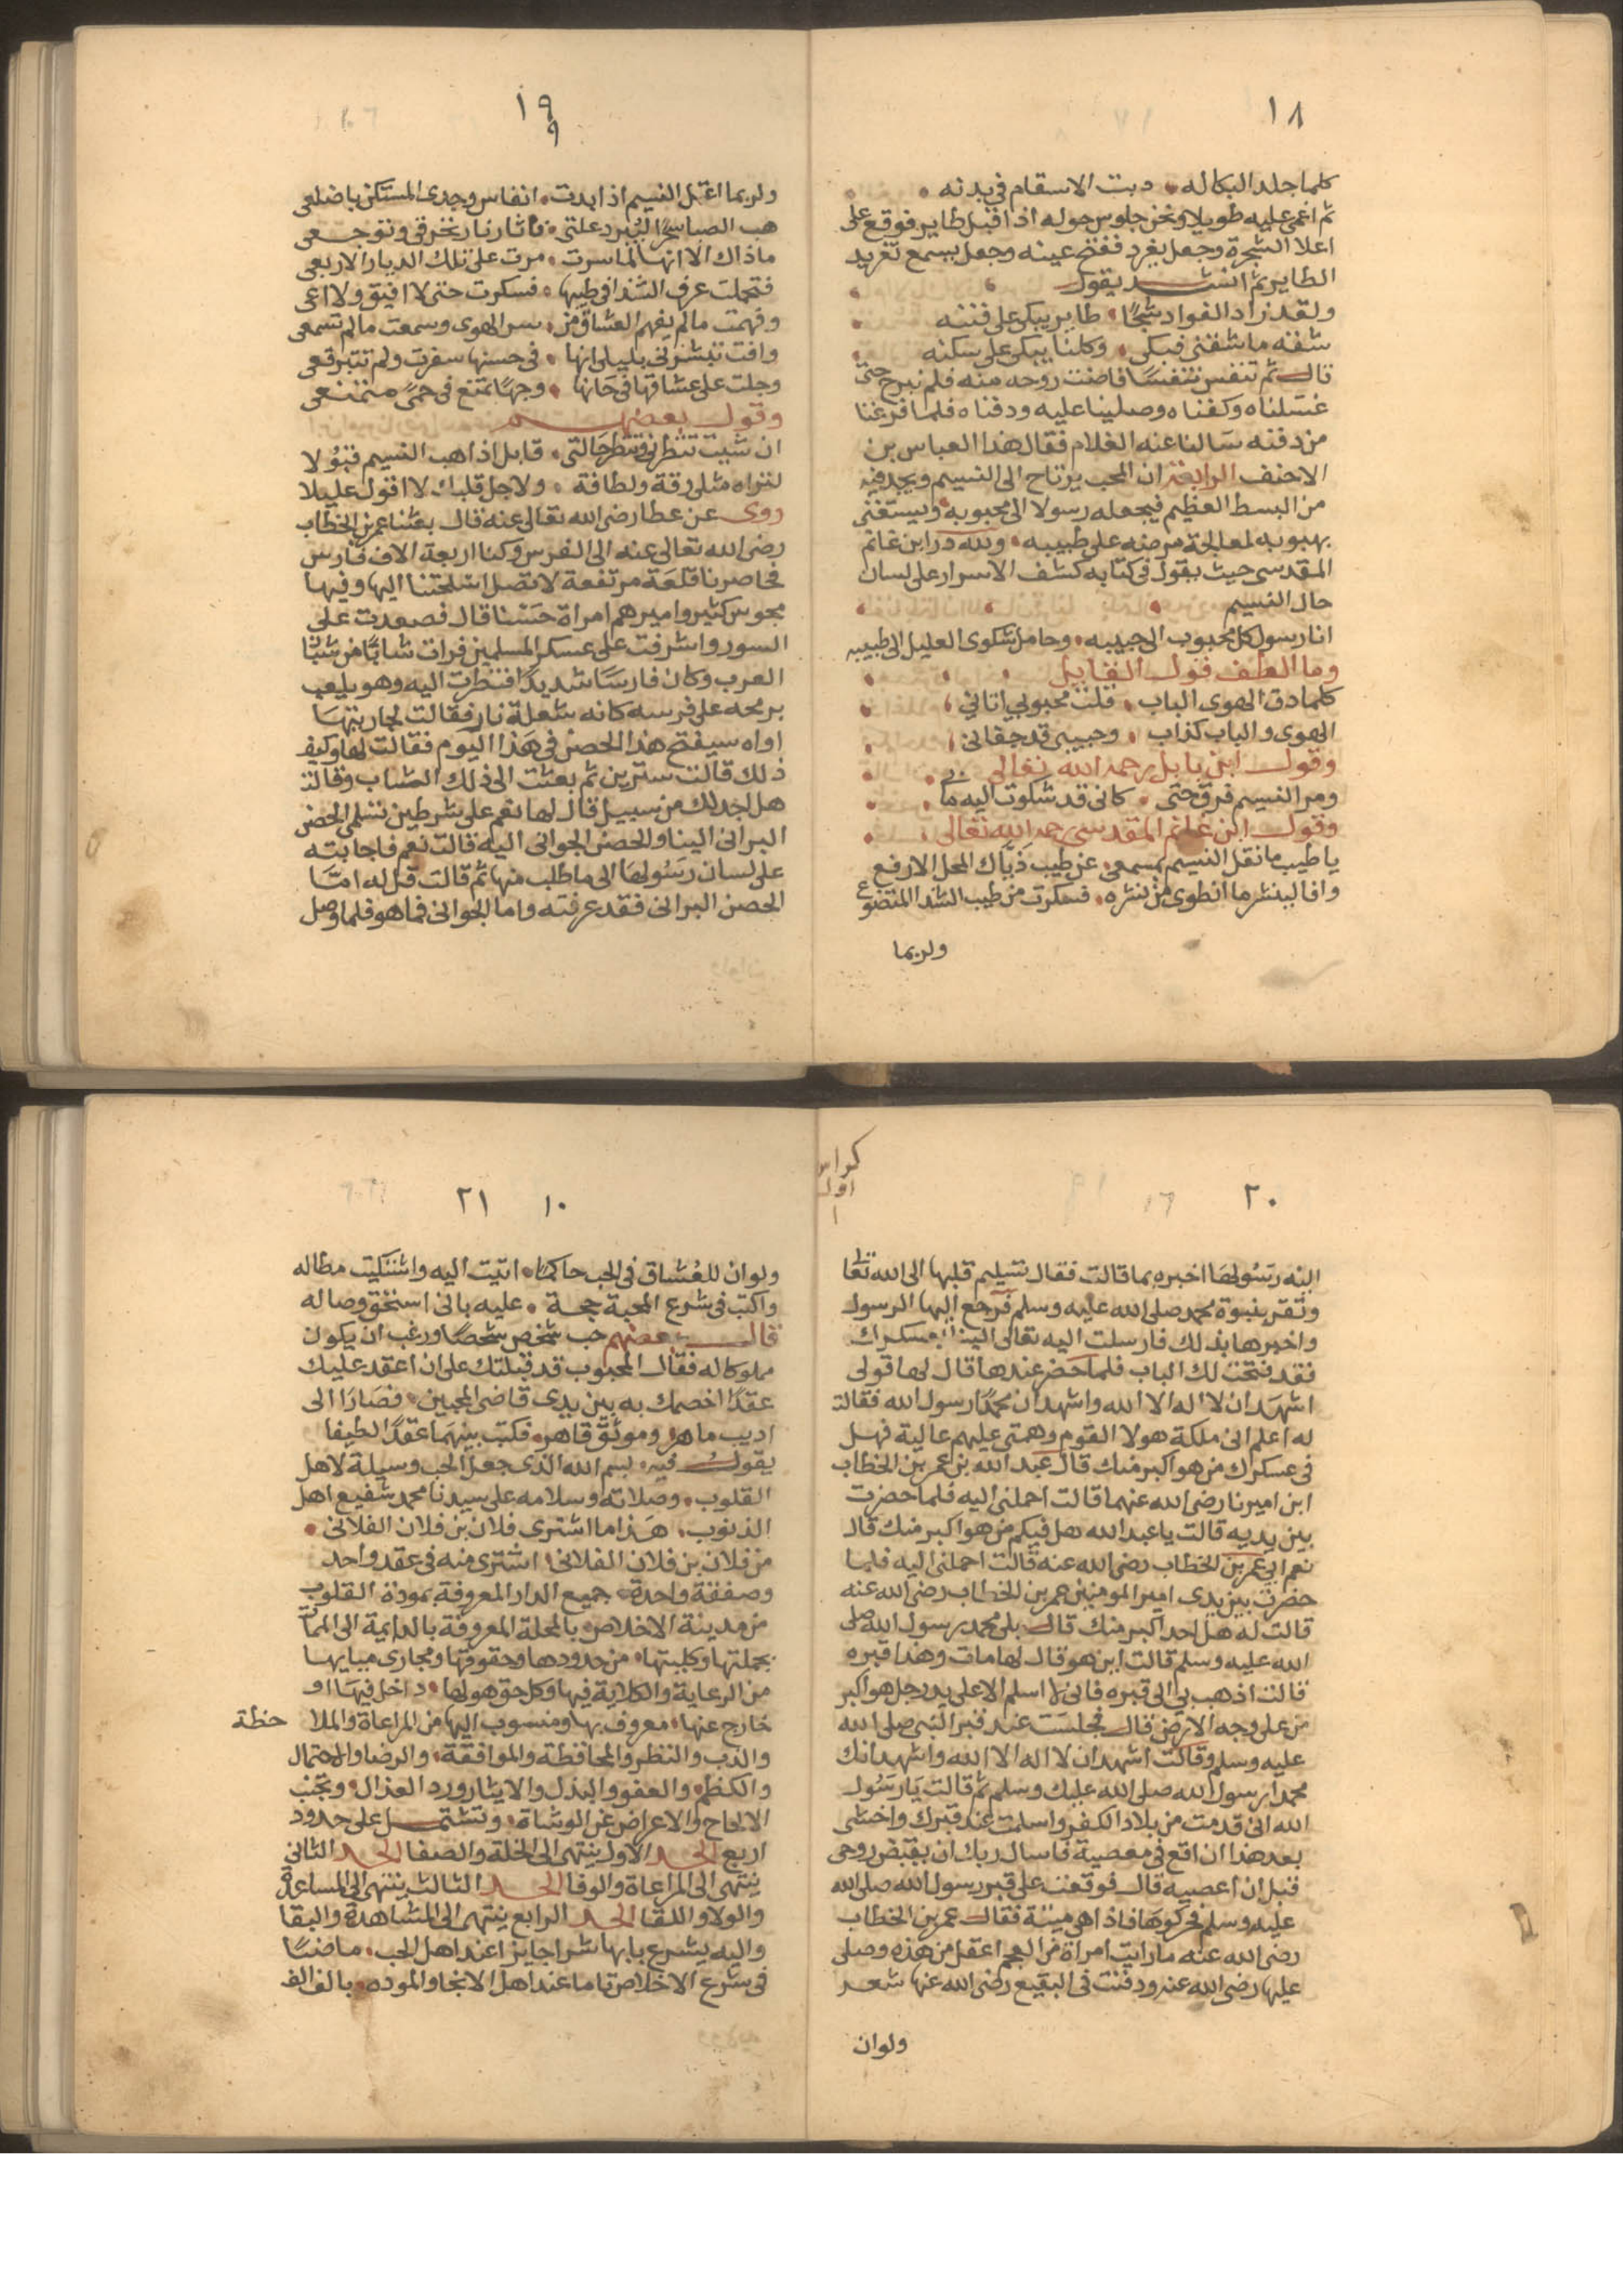 ١٨
كلما جلد البكا له دبت الاسقام فى بدنه
ثم اغمى عليه طويلا ونحن جلوس حوله اذ اقبل طاير فوقع على
اعلا الشجرة وجعل يغرد ففتح عينه وجعل يسمع تغريد
الطاير ثم انشد يقول
ولقد زاد الفواد شجًا طاير يبكى على فننه
شفه ما شفنى فبكى وكلنا يبكى على سكنه
قال ثم تنفس تنفسًا فاضت روحه منه فلم نبرح حتى
غسلناه وكفناه وصلينا عليه ودفناه فلما فرغنا
من دفنه سالنا عنه الغلام فقال هذا العباس بن
الاحنف الرابعة ان المحب يرتاح الى النسيم ويجد فيه
من البسط العظيم فيجعله رسولا الى محبوبه ويستغنى
بهبوبه لمعالجة مرضه على طبيبه ولله در ابن غانم
المقدسى حيث يقول فى كتابه كشف الاسرار على لسان
حال النسيم
انا رسول كل محبوب الى حبيبه وحامل شكوى العليل الى طبيبه
وما الطف قول القايل
كلما دق الهوى الباب قلت محبوبي اتاني
الهوى والباب كذاب وحبيبى قد جفانى
وقول ابن بابل رحمه الله تعالى
ومر النسيم فرق حتى كانى قد شكوت اليه ما بي
وقول ابن غانم المقدسى رحمه الله تعالى
يا طيب ما نقل النسيم بمسمعى عن طيب ذياك المحل الارفع
وافا لينشر ما انطوى من نشره فسكرت من طيب الشذا المتضوع
ولربما
١٩
٩
ولربما اعتل النسيم اذا بدت انفاس وجدى المستكن باضلعى
هب الصبا سحرًا ليبرد علتى فاثار نار تحرقى وتوجعى
ما ذاك الا انها لما سرت مرت على تلك الديار الاربعى
فتحملت عرف الشذا فى طيها فسكرت حتى لا افيق ولا اعى
وفهمت ما لم يفهم العشاق من سر الهوى وسمعت ما لم تسمعى
وافت تبشرنى بليلى انها فى حسنها سفرت ولم تتبرقعى
وجلت على عشاقها فى حانها وجهًا تمنع فى حمىً متمنعى
وقول بعضهم
ان شيت تنظرنى وتنظر حالتى قابل اذا هب النسيم قبولا
لتراه مثلى رقة ولطافة ولاجل قلبك لا اقول عليلا
روى عن عطا رضى الله تعالى عنه قال بعثنا عمر بن الخطاب
رضى الله تعالى عنه الى الفرس وكنا اربعة الاف فارس
فحاصرنا قلعة مرتفعة لا تصل اسلحتنا اليها وفيها
مجوس كثير واميرهم امراة حسنا قال فصعدت على
السور واشرفت على عسكر المسلمين فرات شابًا من شبا
العرب وكان فارسا شديدًا فنظرت اليه وهو يلعب
برمحه على فرسه كانه شعلة نار فقالت لجاريتها
اواه سيفتح هذا الحصن فى هذا اليوم فقالت لها وكيف
ذلك قالت سترين ثم بعثت الى ذلك الشاب وقالت
هل اجد لك من سبيل قال لها نعم على شرطين تسلمى الحصن
البرانى الينا والحصن الجوانى اليه قالت نعم فاجابته
على لسان رسولها الى ما طلب منها ثم قالت قل له اما
الحصن البرانى فقد عرفته واما الجوانى فما هو فلما وصل
كراس
اول
١
٢٠
اليه رسولها اخبره بما قالت فقال تسليم قلبها الى الله تعا
وتقر بنبوة محمد صلى الله عليه وسلم فرجع اليها الرسول
واخبرها بذلك فارسلت اليه تعالى الينا بعسكرك
فقد فتحت لك الباب فلما حضر عندها قال لها قولى
اشهد ان لا اله الا الله واشهد ان محمدًا رسول الله فقالت
له اعلم انى ملكة هولا القوم وهمتى عليهم عالية فهل
فى عسكرك من هو اكبر منك قال عبد الله بن عمر بن الخطاب
ابن اميرنا رضى الله عنهما قالت احملنى اليه فلما حضرت
بين يديه قالت يا عبد الله هل فيكم من هو اكبر منك قال
نعم ابى عمر بن الخطاب رضى الله عنه قالت احملنى اليه فلما
حضرت بين يدى امير المومنين عمر بن الخطاب رضى الله عنه
قالت له هل احد اكبر منك قال بلى محمد رسول الله صلى
الله عليه وسلم قالت اين هو قال لها مات وهذا قبره
قالت اذهب بي الى قبره فانى لا اسلم الا على يد رجل هو اكبر
من على وجه الارض قال فجلست عند قبر النبى صلى الله
عليه وسلم وقالت اشهد ان لا اله الا الله واشهد انك
محمدا رسول الله صلى الله عليك وسلم ثم قالت يا رسول
الله انى قدمت من بلاد الكفر واسلمت عند قبرك واخشى
بعد هذا ان اقع فى معصية فاسال ربك ان يقبض روحى
قبل ان اعصيه قال فوقعت على قبر رسول الله صلى الله
عليه وسلم فحركوها فاذا هى ميتة فقال عمر بن الخطاب
رضى الله عنه ما رايت امراة من العجم اعقل من هذه وصلى
عليها رضى الله عنه ودفنت فى البقيع رضى الله عنها شعر
ولوان
٢١
١٠
ولوان للعشاق فى الحب حاكمًا اتيت اليه واشتكيت مطاله
واكتب فى شرع المحبة حجة عليه بانى استحق وصاله
قال بعضهم حب شخص شخصًا ورغب ان يكون
مملوكا له فقال المحبوب قد قبلتك على ان اعقد عليك
عقدًا اخصمك به بين يدى قاضى المحبين فصارا الى
اديب ماهر وموثق قاهر فكتب بينهما عقدًا لطيفا
يقول فيه بسم الله الذى جعل الحب وسيلة لاهل
القلوب وصلاته وسلامه على سيدنا محمد شفيع اهل
الذنوب هذا ما اشترى فلان بن فلان الفلانى
من فلان بن فلان الفلانى اشترى منه فى عقد واحد
وصفقة واحدة جميع الدار المعروفة بمودة القلوب
من مدينة الاخلاص بالمحلة المعروفة بالدايمة الى الممات
بجملتها وكليتها من حدودها وحقوقها ومجارى مبايها
من الرعاية والكلاية فيها وكل حق هو لها داخل فيها او
خارج عنها معروف بها ومنسوب اليها من المراعاة والملا حظة
والذب والنظر والمحافظة والموافقة والرضا والاحتمال
والكظم والعفو والبذل والايثار ورد العذال وتجنب
الالحاح والاعراض عن الوشاة وتشتمل على حدود
اربع الحد الاول ينتهى الى الخلة والصفا الحد الثانى
ينتهى الى المراعاة والوفا الحد الثالث ينتهى الى المساعدة
والولا واللقا الحد الرابع ينتهى الى المشاهدة والبقا
واليه يشرع بابها شرا جايزا عند اهل الحب ماضيًا
فى شرع الاخلاص تاما عند اهل الانجا والموده بالف الف